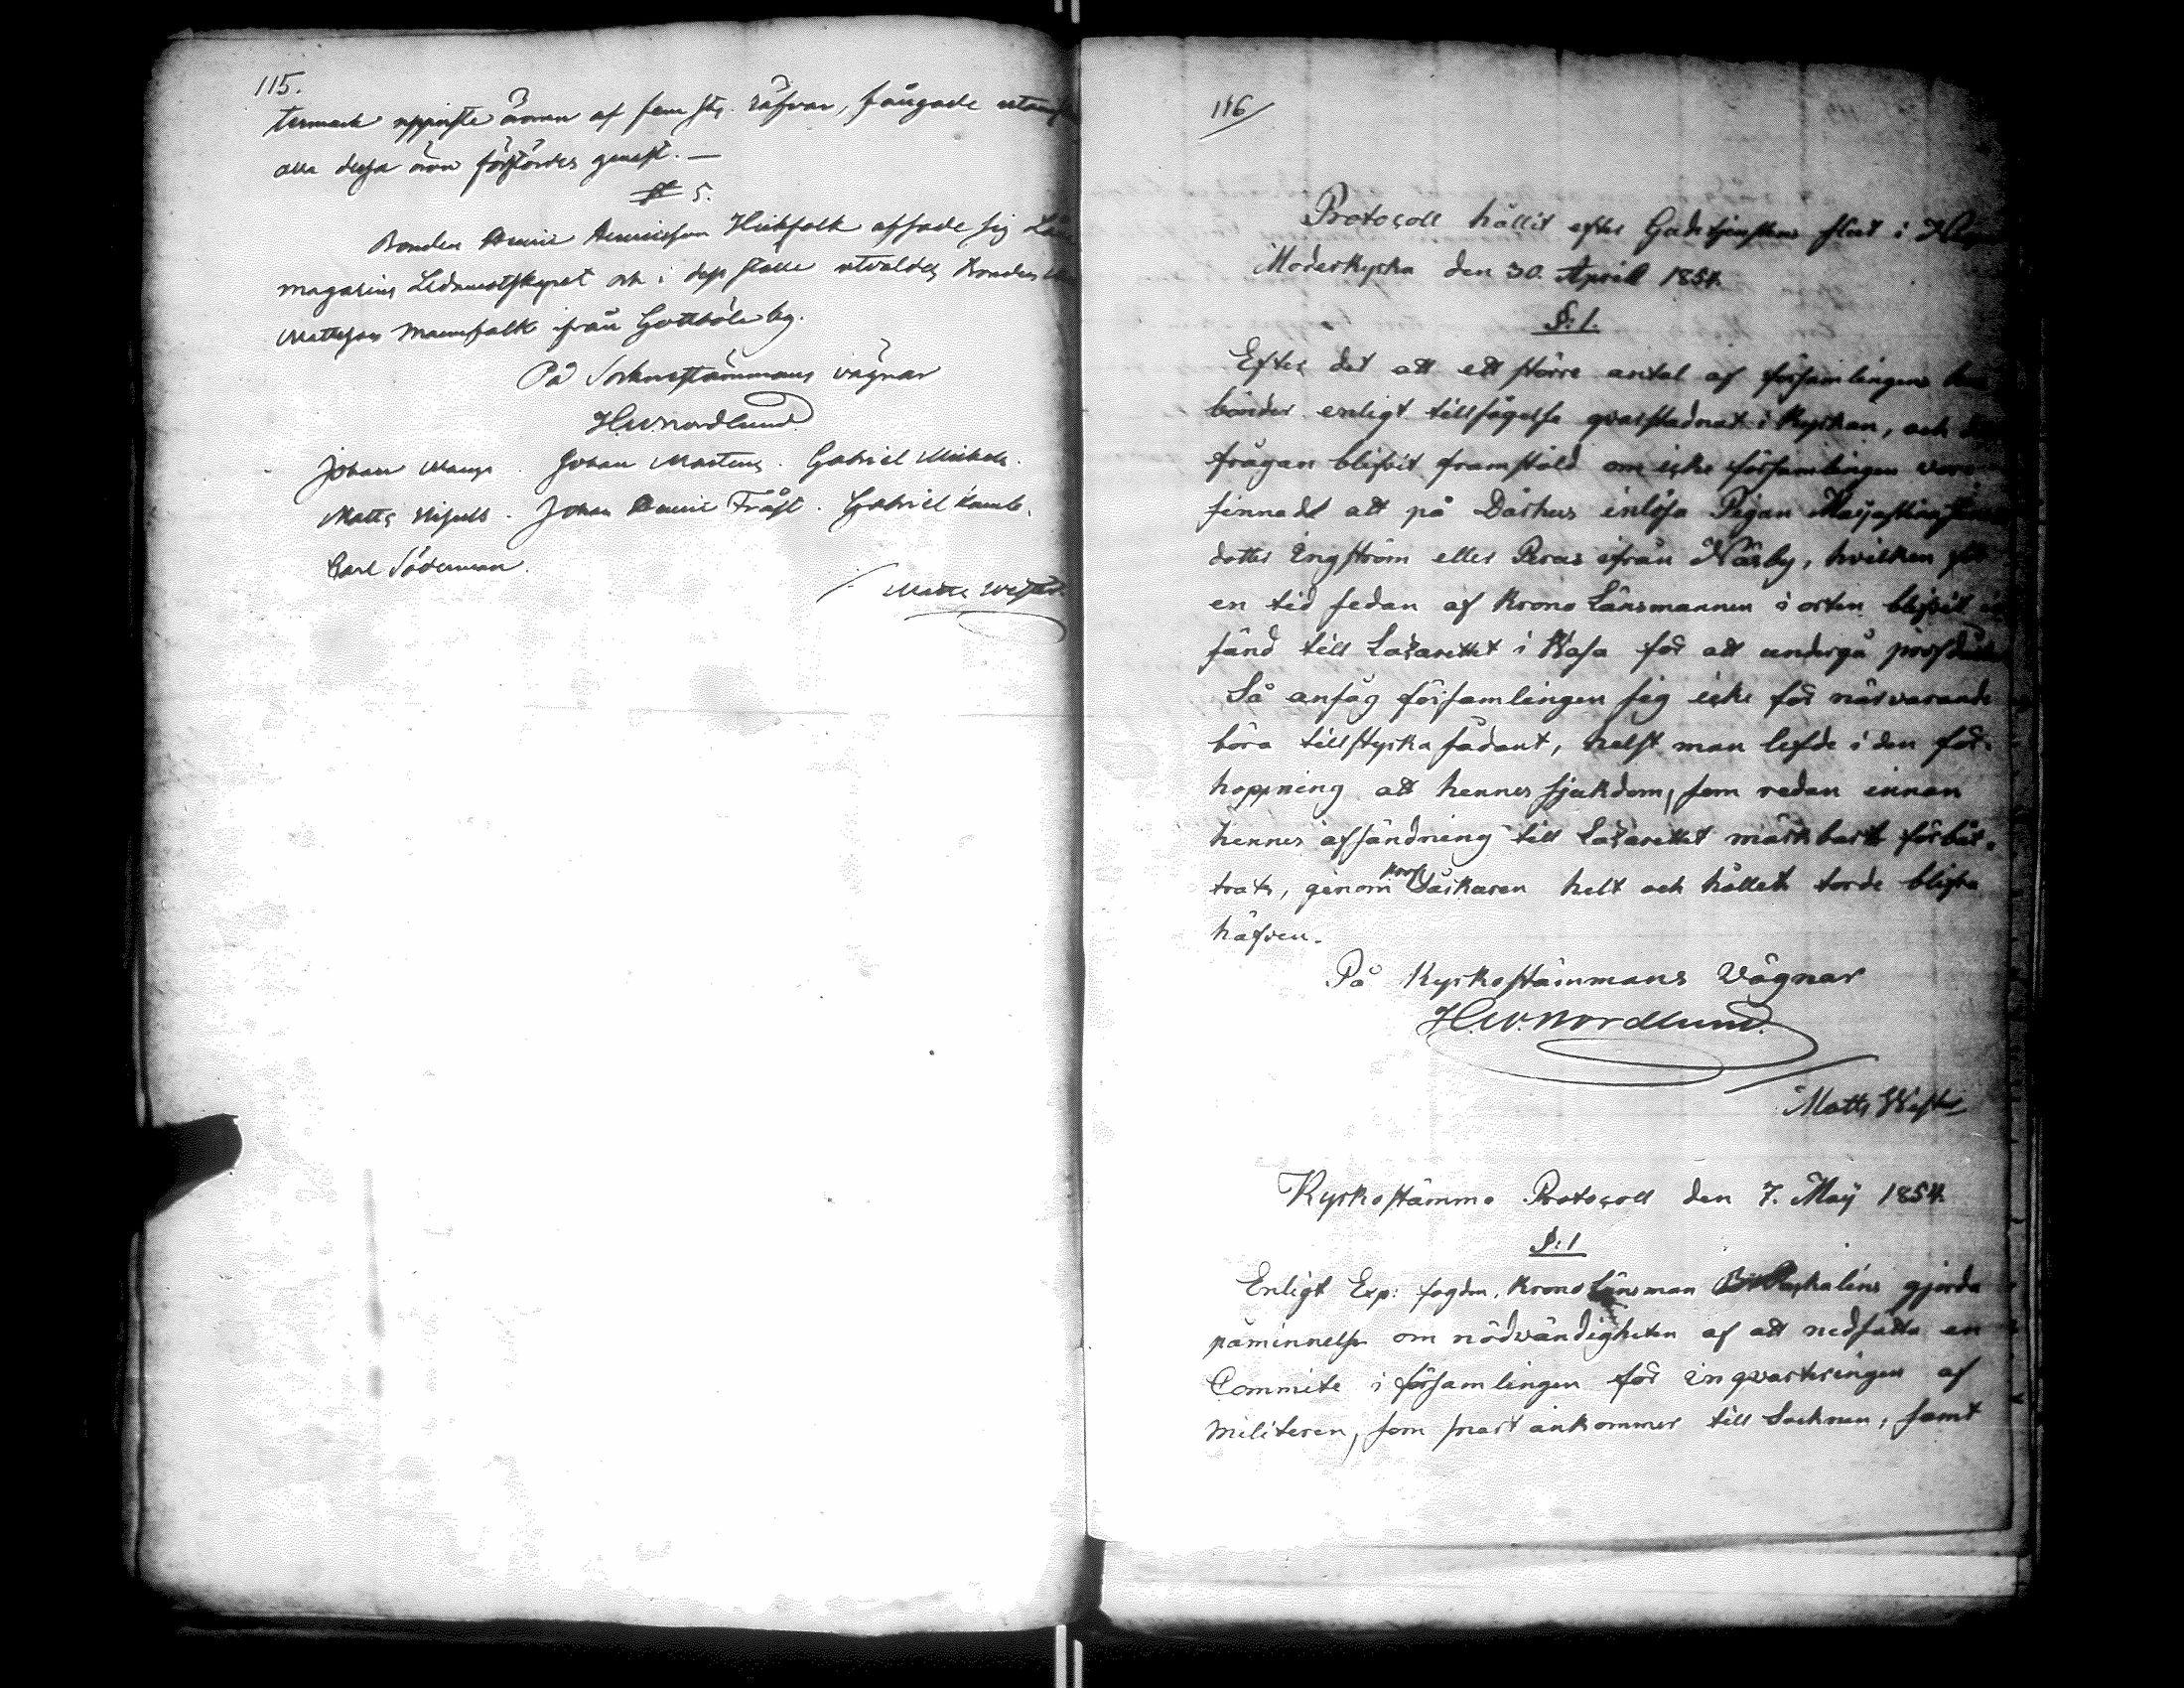 115.
termark uppviste öron af fem st. räfvar, fångade
alla dessa öron förstördes genast. —
§ 5.
Bonden Henric Henricsson Hickfolk afsade sig
magasins Ledamotskapet och i dess ställe utvaldes Bonden
Mattsson Mannfolk från Gottböle by.
På Sockenstämmans vägnar
H.W. Nordlund
Johan Mangs. Johan Martens. Gabriel Michels.
Matts Nissils. Johan Henric Fråst. Gabriel Kamb.
Carl Söderman.
Matts West
116
Protocoll hållit efter Gudstjenstens slut i
Moderkyrka den 30. April 1854.
§: 1.
Efter det att ett större antal af församlingens
bönder enligt tillsägelse qvarstadnat i Kyrkan, och
frågan blifvit framstäld om icke församlingen vore
sinnadt att på Dårhus inlösa Pigan
dotter Engström eller Peras ifrån Närby, hvilken för
en tid sedan af Krono Länsmannen i orten blifvit
sänd till Lazarettet i Wasa för att undergå
Så ansåg församlingen sig icke för närvarande
böra tillstyrka sådant, helst man lefde i den för-
hoppning att hennes sjukdom, som redan innan
hennes afsändning till Lazarettet märkbart förbät-
trats, genom Läkaren helt och hållet torde blifva
häfven.
På Kyrkostämmans Vägnar
H.W. Nordlund.
Matts West
Kyrkostämmo Protocoll den 7. Maij 1854.
§: 1
Enligt Exp: fogden, Krono Länsman gjorda
påminnelse om nödvändigheten af att nedsätta en
Commite i församlingen för inqvarteringen af
Militeren, som snart ankommer till Socknen, samt